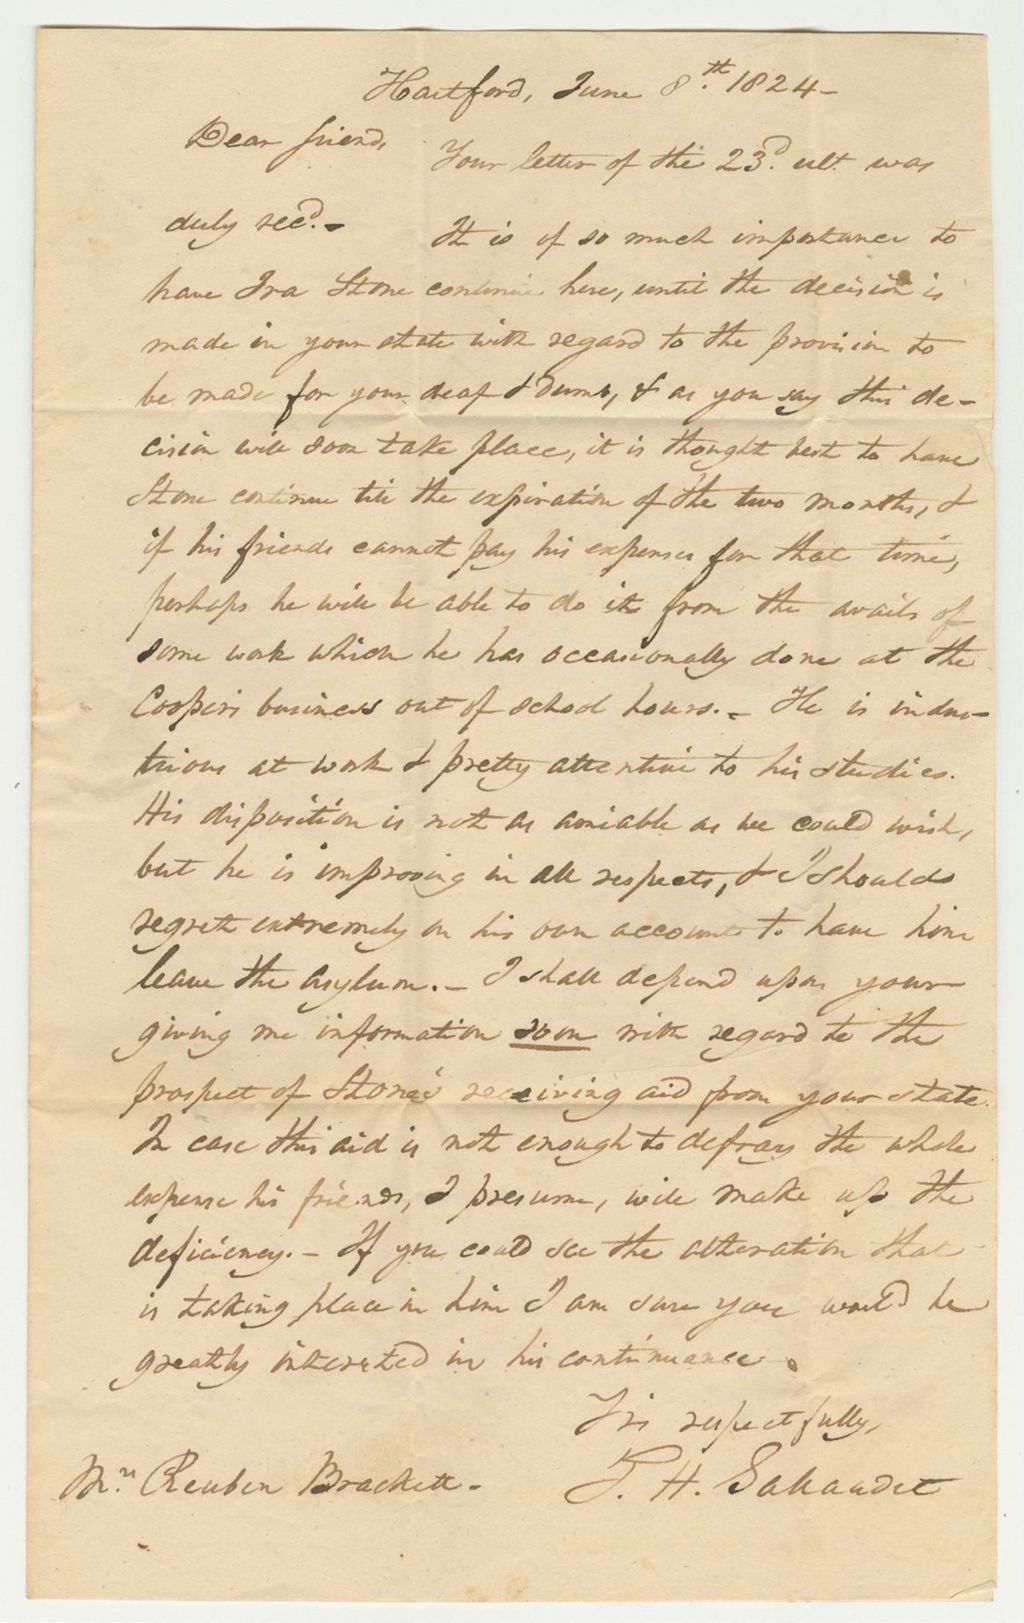 Hartford, June 8.th 1824-
Dear friend,
Your letter of the 23.d ult. was
duly rec.d-
It is of so much importance to
have Ira Stone continue here, until the decision is
made in your state with regard to the provision to
be made for your deaf & dumb, & as you say this de-
cision will soon take place, it is thought best to have
Stone continue till the expiration of the two months, &
if his friends cannot pay his expenses for that time,
perhaps he will be able to do it from the avails of
some work which he has occasionally done at the
Cooper's business out of school hours.- He is indus-
trious at work & pretty attentive to his studies.
His disposition is not as amiable as we could wish,
but he is improving in all respects, & I should
regret extremely on his own account to have him
leave the Asylum.- I shall depend upon your
giving me information soon with regard to the
prospect of Stone's receiving aid from your state.
In case this aid is not enough to defray the whole
expense his friends, I presume, will make up the
deficiency.- If you could see the alteration that
is taking place in him I am sure you would be
greatly interested in his continuance.
Yrs respectfully,
T. H. Gallaudet
Mr. Reuben Brackett.